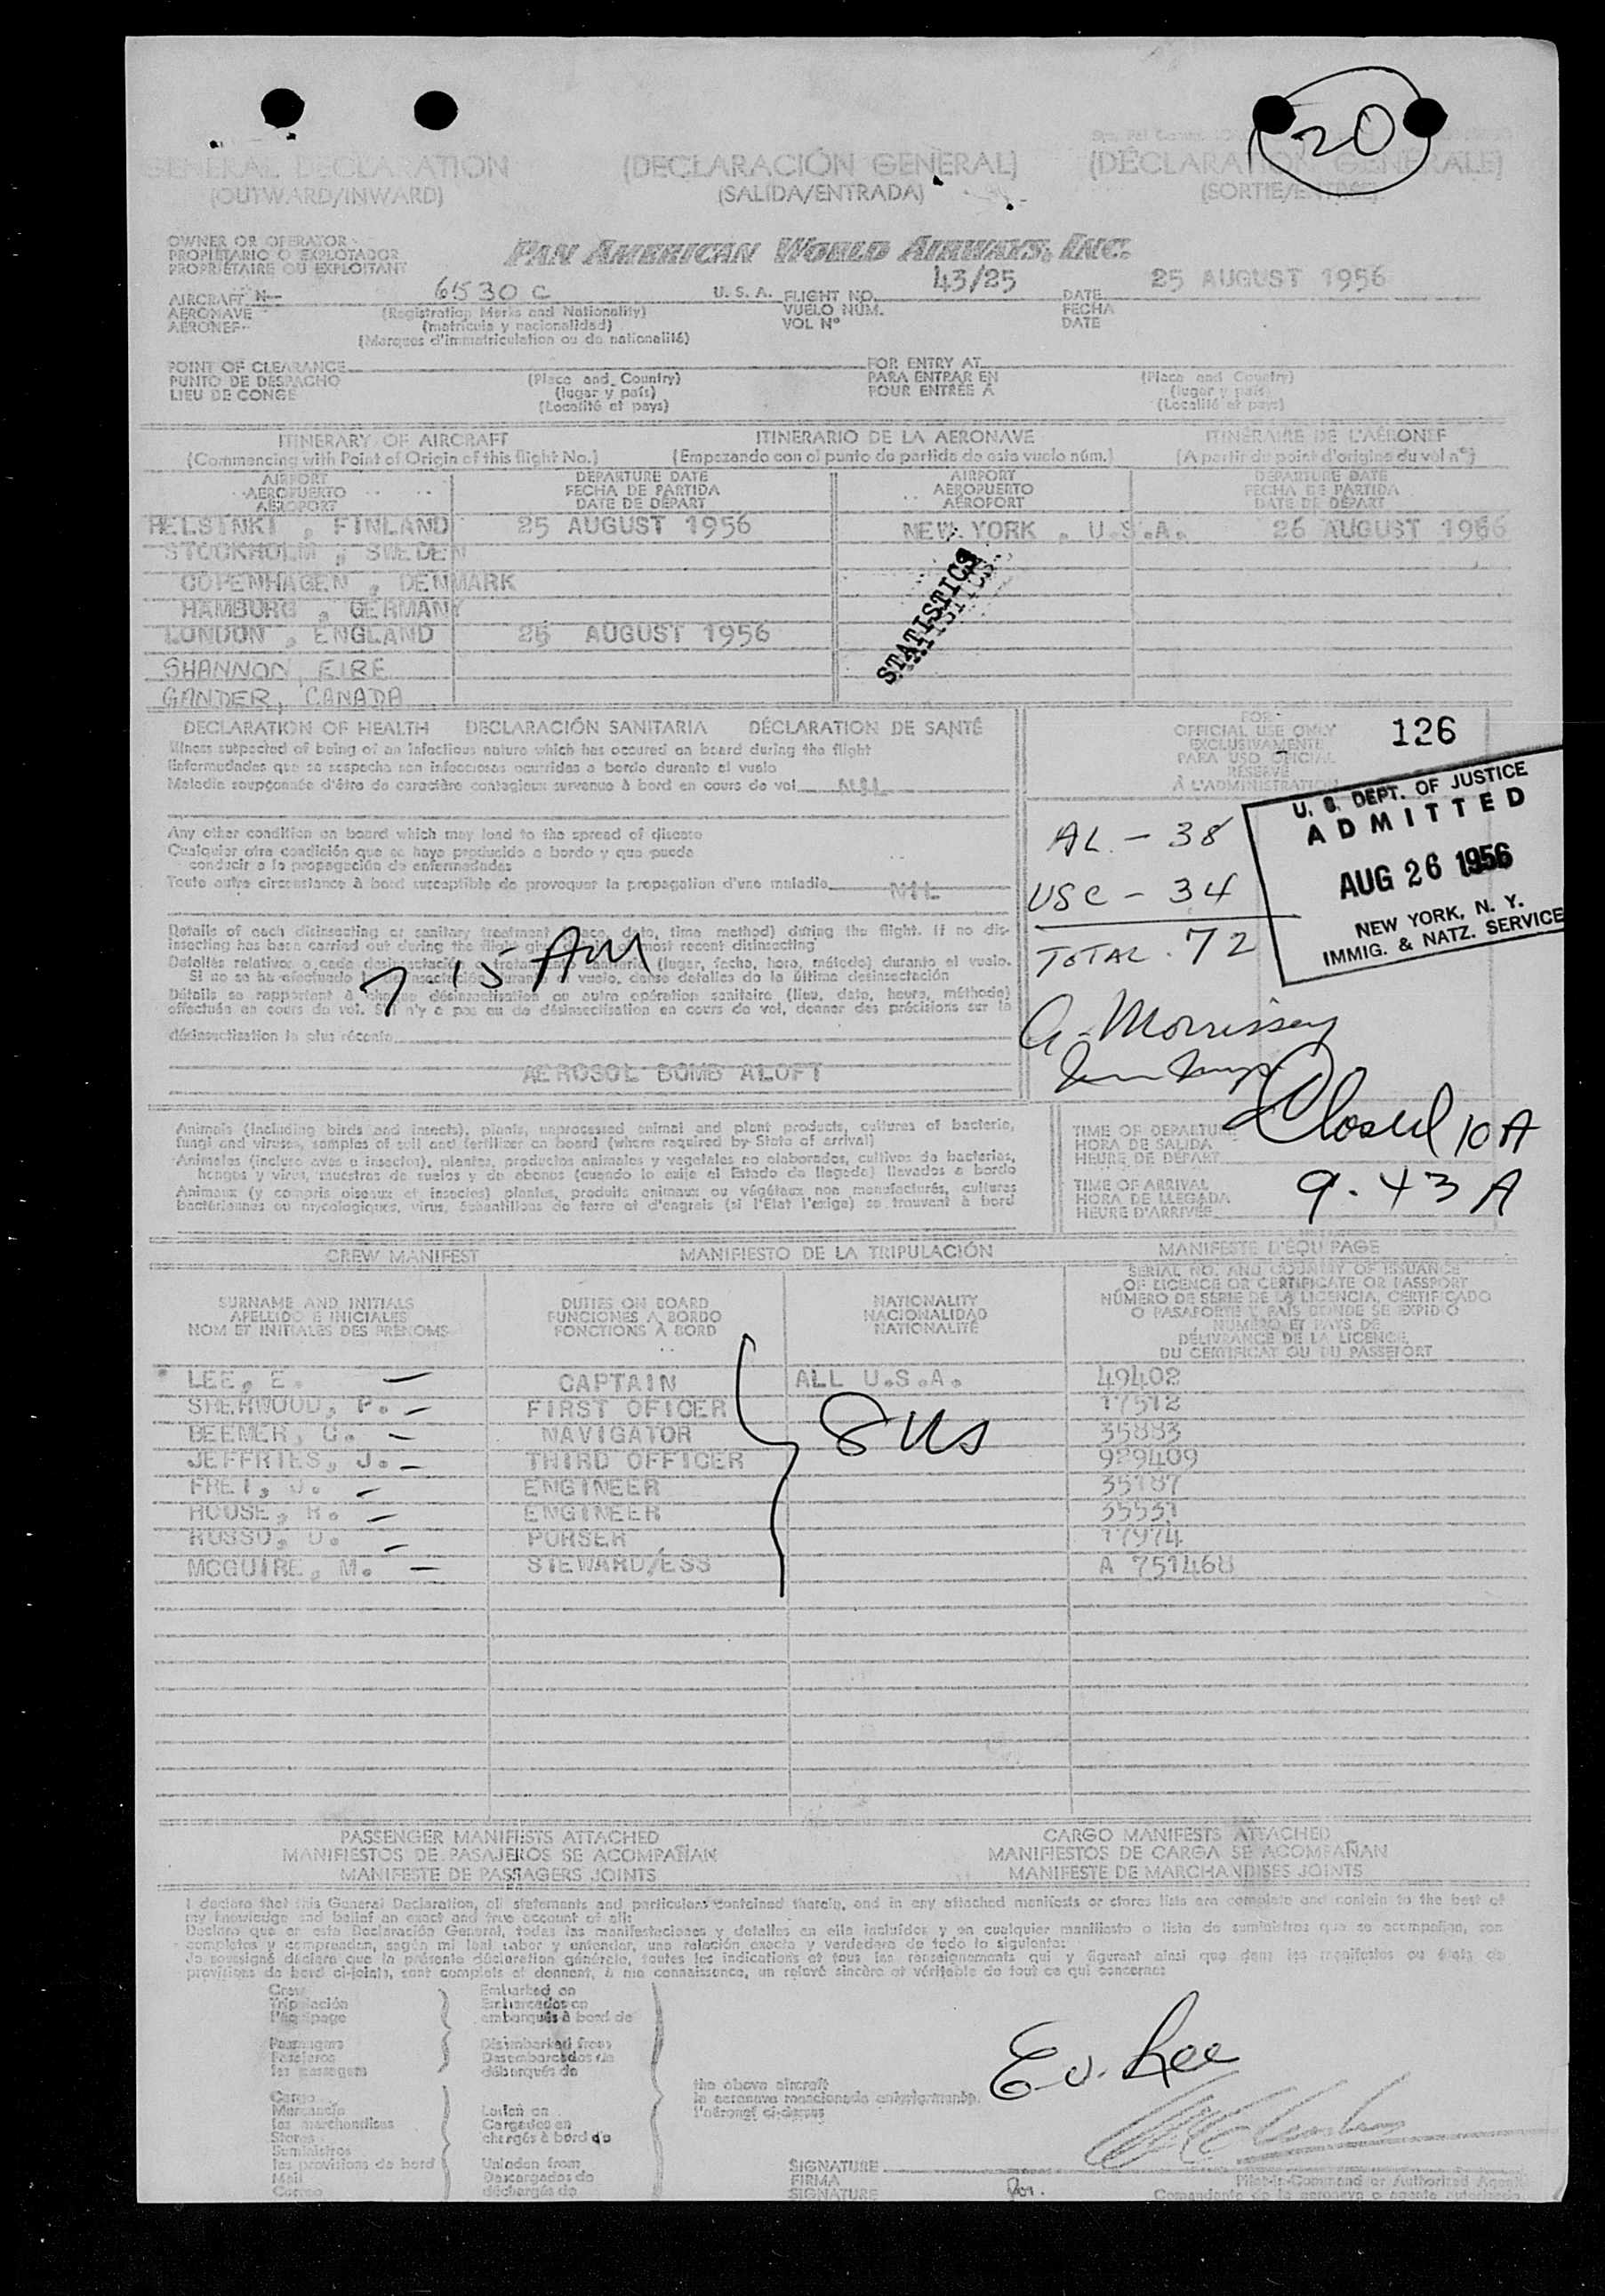 20
GENERAL DECLARATION (DECLARACIÓN GENERAL) (DÉCLARATION GÉNÉRALE)
(OUTWARD/INWARD) (SALIDA/ENTRADA) (SORTIE/ENTRÉE)
OWNER OR OPERATOR
PROPIETARIO O EXPLOTADOR
PROPRIÉTAIRE OU EXPLOITANT
PAN AMERICAN WORLD AIRWAYS, INC.
AIRCRAFT N- 6530 C U. S. A. FLIGHT NO. 43/25 DATE 25 AUGUST 1956
AERONAVE (Registration Marks and Nationality) VUELO NÚM. FECHA
AÉRONEF (matrícula y nacionalidad) VOL Nº DATE
(Marques d'immatriculation ou de nationalité)
POINT OF CLEARANCE FOR ENTRY AT
PUNTO DE DESPACHO (Place and Country) PARA ENTRAR EN (Place and Country)
LIEU DE CONGÉ (lugar y país) POUR ENTRÉE À (lugar y país)
(Localité et pays) (Localité et pays)
ITINERARY OF AIRCRAFT ITINERARIO DE LA AERONAVE ITINÉRAIRE DE L'AÉRONEF
(Commencing with Point of Origin of this flight No.) (Empezando con el punto de partida de este vuelo núm.) (A partir du point d'origine du vol nº)
AIRPORT DEPARTURE DATE AIRPORT DEPARTURE DATE
AEROPUERTO FECHA DE PARTIDA AEROPUERTO FECHA DE PARTIDA
AÉROPORT DATE DE DÉPART AÉROPORT DATE DE DÉPART
HELSINKI , FINLAND 25 AUGUST 1956 NEW YORK , U.S.A. 26 AUGUST 1956
STOCKHOLM , SWEDEN
COPENHAGEN , DENMARK
HAMBURG , GERMANY
LONDON , ENGLAND 25 AUGUST 1956
SHANNON, EIRE
GANDER, CANADA
STATISTICS
STATISTICS
DECLARATION OF HEALTH DECLARACIÓN SANITARIA DÉCLARATION DE SANTÉ
Illness suspected of being of an infectious nature which has occured on board during the flight
Enfermedades que se sospecha son infecciosas ocurridas a bordo durante el vuelo
Maladie soupçonnée d'être de caractère contagieux survenue à bord en cours de vol NIL
Any other condition on board which may lead to the spread of disease
Cualquier otra condición que se haya producido a bordo y que pueda
conducir a la propagación de enfermedades
Toute autre circonstance à bord susceptible de provoquer la propagation d'une maladie NIL
Details of each disinsecting or sanitary treatment (place, date, time method) during the flight. If no dis-
insecting has been carried out during the flight give most recent disinsecting
Detalles relativos a cada desinsectación o tratamiento sanitario (lugar, fecha, hora, método) durante el vuelo.
Si no se ha efectuado desinsectación durante el vuelo, dense detalles de la última desinsectación
Détails se rapportant à chaque désinsectisation ou autre opération sanitaire (lieu, date, heure, méthode)
effectuée en cours de vol. S'il n'y a pas eu de désinsectisation en cours de vol, donner des précisions sur la
désinsectisation la plus récente
7 15 AM
AEROSOL BOMB ALOFT
FOR
OFFICIAL USE ONLY
EXCLUSIVAMENTE
PARA USO OFICIAL
RÉSERVÉ
À L'ADMINISTRATION
126
U. S. DEPT. OF JUSTICE
ADMITTED
AUG 26 1956
NEW YORK, N. Y.
IMMIG. & NATZ. SERVICE
AL. - 38
USC - 34
TOTAL. 72
G. Morrissey
Closed 10 A
Animals (including birds and insects), plants, unprocessed animal and plant products, cultures of bacteria,
fungi and viruses, samples of soil and fertilizer on board (where required by State of arrival)
Animales (incluso aves e insectos), plantas, productos animales y vegetales no elaborados, cultivos de bacterias,
hongos y virus, muestras de suelos y de abonos (cuando lo exija el Estado de llegada) llevados a bordo
Animaux (y compris oiseaux et insectes) plantes, produits animaux ou végétaux non manufacturés, cultures
bactériennes ou mycologiques, virus, échantillons de terre et d'engrais (si l'État l'exige) se trouvant à bord
TIME OF DEPARTURE
HORA DE SALIDA
HEURE DE DÉPART
TIME OF ARRIVAL
HORA DE LLEGADA
HEURE D'ARRIVÉE
9.43 A
CREW MANIFEST MANIFIESTO DE LA TRIPULACIÓN MANIFESTE D'EQUIPAGE
SURNAME AND INITIALS
APELLIDO E INICIALES
NOM ET INITIALES DES PRÉNOMS
DUTIES ON BOARD
FUNCIONES A BORDO
FONCTIONS À BORD
NATIONALITY
NACIONALIDAD
NATIONALITÉ
SERIAL NO. AND COUNTRY OF ISSUANCE
OF LICENCE OR CERTIFICATE OR PASSPORT
NÚMERO DE SERIE DE LA LICENCIA, CERTIFICADO
O PASAPORTE Y PAÍS DONDE SE EXPIDIÓ
NUMÉRO ET PAYS DE
DÉLIVRANCE DE LA LICENCE,
DU CERTIFICAT OU DU PASSEPORT
LEE, E. CAPTAIN ALL U.S.A. 49402
SHERWOOD, P. FIRST OFICER 17512
BEEMER, C. NAVIGATOR 35883
JEFFRIES, J. THIRD OFFICER 929409
FREI, J. ENGINEER 35187
HOUSE, R. ENGINEER 35531
RUSSO, D. PURSER 17974
MCGUIRE, M. STEWARD/ESS A 751468
8 US
PASSENGER MANIFESTS ATTACHED CARGO MANIFESTS ATTACHED
MANIFIESTOS DE PASAJEROS SE ACOMPAÑAN MANIFIESTOS DE CARGA SE ACOMPAÑAN
MANIFESTE DE PASSAGERS JOINTS MANIFESTE DE MARCHANDISES JOINTS
I declare that this General Declaration, all statements and particulars contained therein, and in any attached manifests or stores lists are complete and contain to the best of
my knowledge and belief an exact and true account of all:
Declaro que en esta Declaración General, todas las manifestaciones y detalles en ella incluídos y en cualquier manifiesto o lista de suministros que se acompañan, son
completos y comprenden, según mi leal saber y entender, una relación exacta y verdadera de todo lo siguiente:
Je soussigné déclare que la présente déclaration générale, toutes les indications et tous les renseignements qui y figurent ainsi que dans les manifestes ou états de
provisions de bord ci-joints, sont complets et donnent, à ma connaissance, un relevé sincère et véritable de tout ce qui concerne:
Crew Embarked on
Tripulación Embarcados en
l'équipage embarqués à bord de
Passengers Disembarked from
Pasajeros Desembarcados de
les passagers débarqués de
the above aircraft
la aeronave mencionada anteriormente.
l'aéronef ci-dessus
Cargo
Mercancía Laden on
les marchandises Cargados en
Stores chargés à bord de
Suministros
les provisions de bord Unladen from
Mail Descargados de
Correo déchargés de
E.v. Lee
SIGNATURE
FIRMA Pilot-in-Command or Authorized Agent
SIGNATURE for. Comandante de la aeronave o agente autorizado